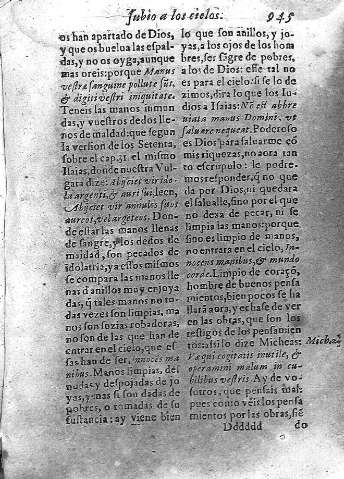 subio a los cielos. 945
os han apartado de Dios,
y que os buelua las espal-
das, y no os oyga, aunque
mas oreis: porque Manus
vestræ sanguine pollutæ sũt,
& digiti vestri iniquitate.
Teneis las manos inmun
das, y vuestros dedos lle-
nos de maldad: que segun
la version de los Setenta,
sobre el cap. 31. el mismo
Isaias, donde nuestra Vul
gata dize: Abijciet vir idola
argenti, & auri sui; leen,
Abijciet vir annulos suos
aureos, vel argenteos. Don-
de estar las manos llenas
de sangre, y los dedos de
maldad, son pecados de
idolatria; y a essos mismos
se compara las manos lle
nas d anillos muy enjoya
das, q̃ tales manos no to-
das vezes son limpias, ma
nos son suzias robadoras,
no son de las que han de
entrar en el cielo, que es-
sas han de ser, innoces ma
nibus. Manos limpias, des
nudas y despojadas de jo
yas, y mas si son dadas de
pobres, o tomadas de su
sustancia: ay viene bien
lo que son anillos, y jo-
yas, a los ojos de los hom
bres, ser sãgre de pobres,
a los de Dios: esse tal no
es para el cielo: si se lo de
zimos, dira lo que los Iu-
dios a Isaias: Nõ est abbre
uiata manus Domini, vt
saluare nequeat. Poderoso
es Dios para saluarme cõ
mis riquezas, no aora tan
to escrupulo: le podre-
mos responder, q̃ no que
da por Dios, ni quedara
el salualle, sino por el que
no dexa de pecar, ni se
limpia las manos: porque
sino es limpio de manos,
no entrara en el cielo, In-
nocens manibus, & mundo
corde. Limpio de coraçõ,
hombre de buenos pensa
mientos, bien pocos se ha
llarã aora, y echase de ver
en las obras, que son los
testigos de los pensamien
tos: assi lo dize Micheas: Micheæ 2.
Væ qui cogitatis inutile, &
operamini malum in cu-
bilibus vestris. Ay de vo-
sotros, que pensais mal:
pues como veis los pensa
mientos por las obras, siẽ
Dddddd do